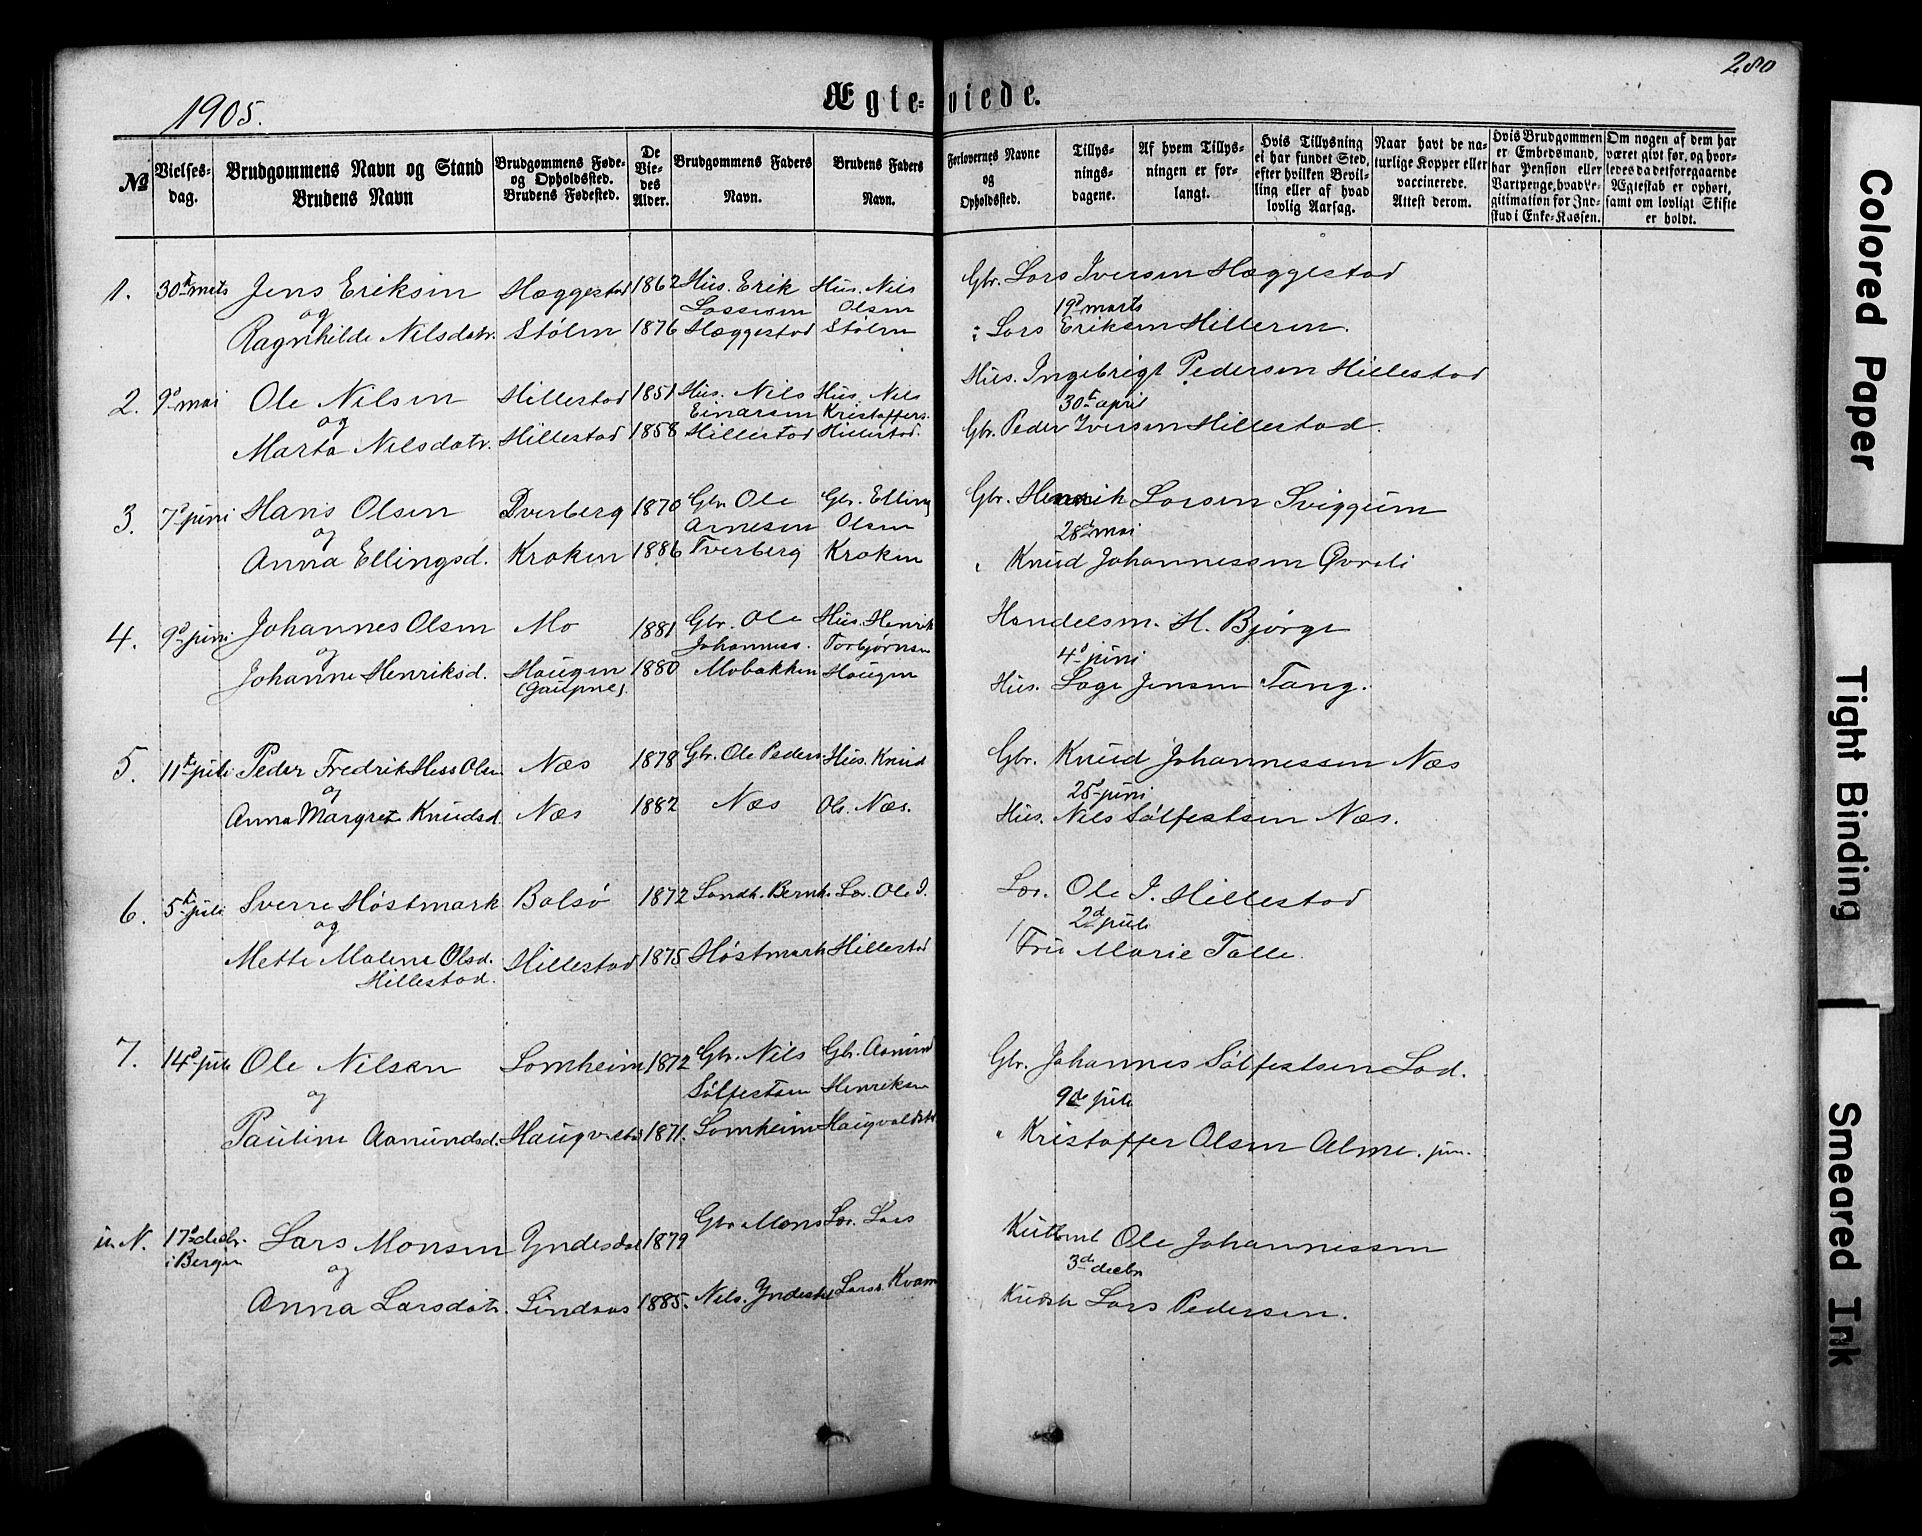 280
1905.
Ægteviede.
№
Vielses-
dag.
Brudgommens Navn og Stand
Brudens Navn
Brudgommens Føde-
og Opholdsted.
Brudens Fødested.
De
Vie-
des
Alder.
Brudgommens Faders
Navn.
Brudens Faders
Navn.
Forlovernes Navne
og
Opholdssted.
Tillys-
nings-
dagene.
Af hvem Tillys-
ningen er for-
langt.
Hvis Tillysning
ei har fundet Sted,
efter hvilken Bevil-
ling eller af hvad
lovlig Aarsag.
Naar havt de na-
turlige Kopper eller
vaccinerede.
Attest derom.
Hvis Brudgommen
er Embedsmand,
har Pension eller
Vartpenge, hvad Le-
gitimation for Ind-
skud i Enke-Kassen.
Om nogen af dem har
været givt før, og hvor-
ledes da det foregaaende
Ægteskab er ophørt,
samt om lovligt Skifte
er holdt.
1. 30te mrts Jens Eriksen Hæggestad 1862 Hus. Erik Hus. Nils Gbr. Lars Iversen Hæggestad
og Lassesen Olsen 19d marts
Ragnhilde Nilsdatr. Stølen 1876 Hæggestad Stølen : Lars Eriksen Hilleren.
2. 9d mai Ole Nilsen Hillestad 1851 Hus. Nils Hus. Nils Hus. Ingebrigt Pedersen Hillestad
og Einarsen Kristoffers. 30t april
Marta Nilsdatr. Hillestad 1858 Hillestad Hillestad. Gbr. Peder Iversen Hillestad.
3. 7d juni Hans Olsen Dverberg 1870 Gbr. Ole Gbr. Elling Gbr. Henrik Larsen Sviggum
og Arnesen Olsen 28d mai
Anna Ellingsd. Kroken 1886 Tverberg Kroken " Knud Johannessen Øvreli
4. 9d juni Johannes Olsen Mo 1881 Gbr. Ole Hus. Henrik Handelsm. H. Bjørge
og Johanness. Torbjørnsen 4d juni
Johanne Henriksd. Haugen 1880 Mobakken Haugen Hus. Lage Jensen Tang.
(Gaupne)
5. 11te juli Peder Fredrik Hess Olsen Næs 1878 Gbr. Ole Peders Hus. Knud Gbr. Knud Johannessen Næs
og 25d juni
Anna Margrete Knudsd. Næs 1882 Næs Ols. Næs. Hus. Nils Sølfestsen Næs.
6. 5te juli Sverre Høstmark Bolsø 1872 Landh. Bernh. Lær. Ole I. Lær. Ole I. Hillestad
og 2d juli
Mette Malene Olsd. Hillestad 1875 Høstmark Hillestad Fru Marie Talle.
Hillestad.
7. 14d juli Ole Nilsen Lomheim 1872 Gbr. Nils Gbr. Aamund Gbr. Johannes Sølfestsen Lad.
og Sølfestsen Henriksen 9de juli
Pauline Aamundsd. Haugvaldstad 1871. Lomheim Haugvaldstad " Kristoffer Olsen Alme. jun.
u. N. 17d decbr. Lars Monsen Yndesdal 1879 Gbr. Mons Lær. Lars Ole Johannessen
i Bergen og 3d decbr
Anna Larsdatr. Lindaas 1885. Nils. Yndesdal Larss. Kvam Lars Pedersen.
Colored Paper
Tight Binding
Smeared Ink